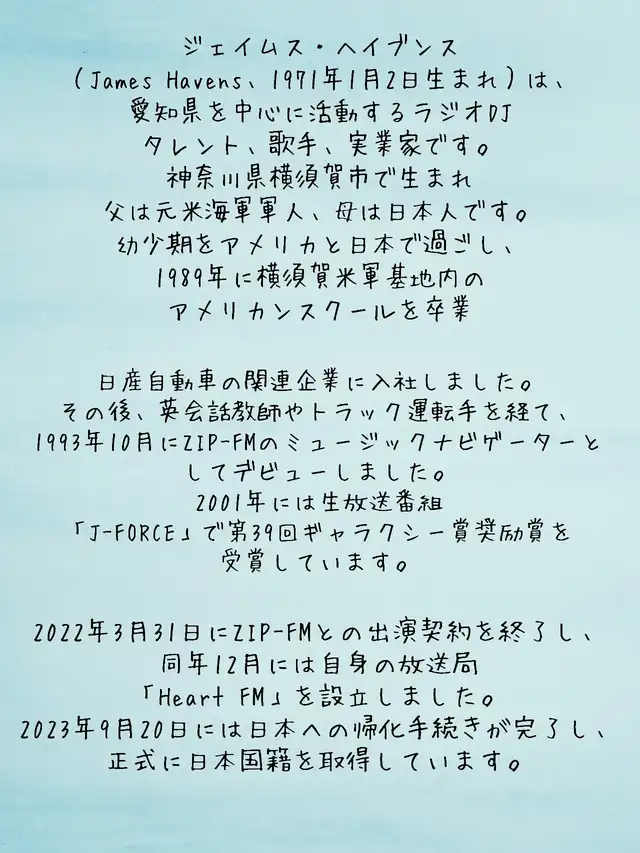 ジェイムス・ヘイブンス
（James Havens、1971年1月2日生まれ）は、
愛知県を中心に活動するラジオDJ
タレント、歌手、実業家です。
神奈川県横須賀市で生まれ
父は元米海軍軍人、母は日本人です。
幼少期をアメリカと日本で過ごし、
1989年に横須賀米軍基地内の
アメリカンスクールを卒業
日産自動車の関連企業に入社しました。
その後、英会話教師やトラック運転手を経て、
1993年10月にZIP-FMのミュージックナビゲーターと
してデビューしました。
2001年には生放送番組
「J-FORCE」で第39回ギャラクシー賞奨励賞を
受賞しています。
2022年3月31日にZIP-FMとの出演契約を終了し、
同年12月には自身の放送局
「Heart FM」を設立しました。
2023年9月20日には日本への帰化手続きが完了し、
正式に日本国籍を取得しています。